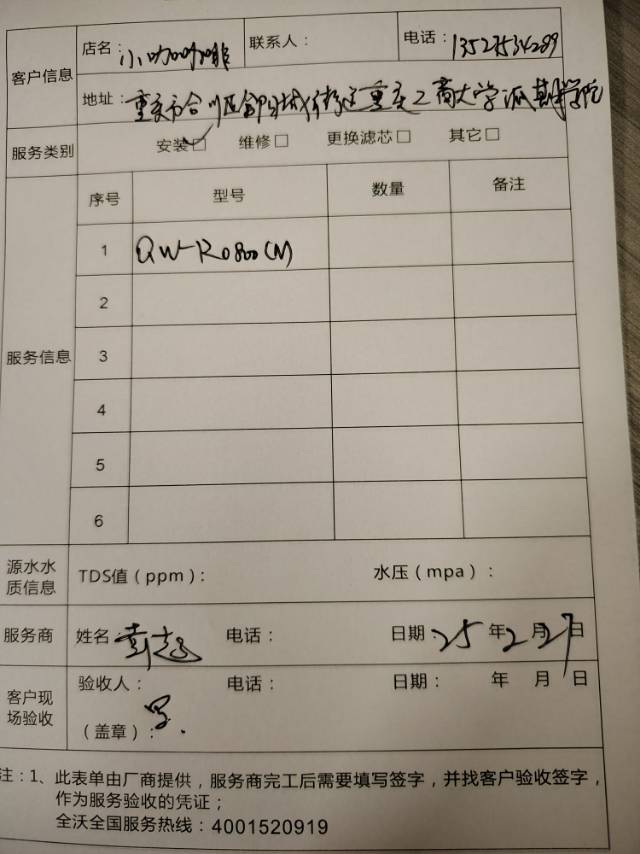 客户信息 店名：小咖咖啡 联系人： 电话：13527534289
地址：重庆市合川区 街道重庆工商大学派斯学院
服务类别 安装☑ 维修□ 更换滤芯□ 其它□
服务信息 序号 型号 数量 备注
1 QW-RO800(N)
2
3
4
5
6
源水水质信息 TDS值（ppm）： 水压（mpa）：
服务商 姓名 电话： 日期：25年2月27日
客户现场验收 验收人： 电话： 日期： 年 月 日
（盖章）：
注：1、此表单由厂商提供，服务商完工后需要填写签字，并找客户验收签字，
作为服务验收的凭证；
全沃全国服务热线：4001520919